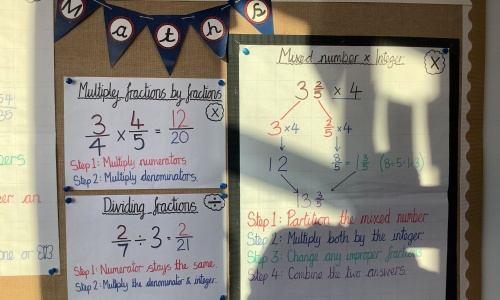 Maths
Multiply fractions by fractions
3/4 × 4/5 = 12/20
Step 1: Multiply numerators
Step 2: Multiply denominators.
×
Dividing fractions
÷
2/7 ÷ 3 = 2/21
Step 1: Numerator stays the same.
Step 2: Multiply the denominator & integer.
Mixed number x Integer
×
3 2/5 × 4
3 × 4 2/5 × 4
12 8/5 = 1 3/5 (8÷5=1r3)
13 3/5
Step 1: Partition the mixed number
Step 2: Multiply both by the integer.
Step 3: Change any improper fractions
Step 4: Combine the two answers.
54
35
er an